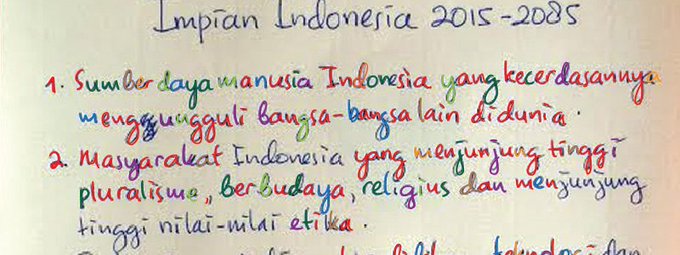 Impian Indonesia 2015-2085
1. Sumber daya manusia Indonesia yang kecerdasannya
mengungguli bangsa-bangsa lain di dunia.
2. Masyarakat Indonesia yang menjunjung tinggi
pluralisme, berbudaya, religius dan menjunjung
tinggi nilai-nilai etika.
teknologi dan